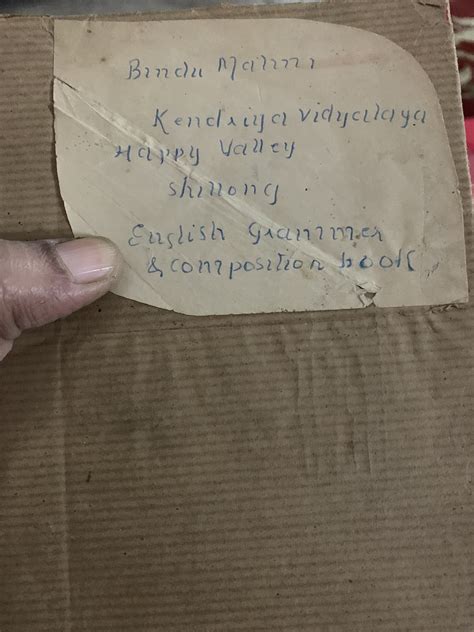 Bindu Malini
Kendriya Vidyalaya
Happy Valley
Shillong
English Grammer
& composition book